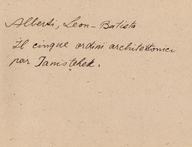 Alberti, Leon-Batista
Il cinque ordini architettonici
par Janitschek.